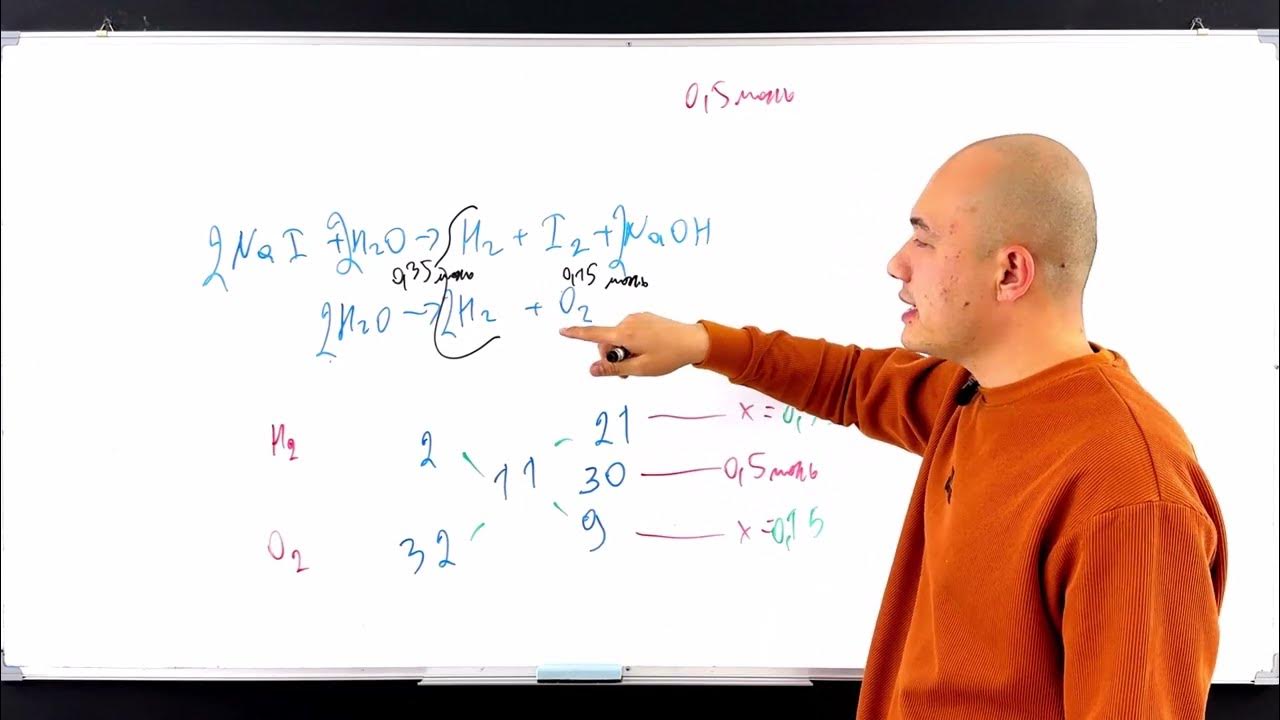 0,5 моль
2NaI + 2H₂O → H₂ + I₂ + 2NaOH
0,35 моль 0,15 моль
2H₂O → 2H₂ + O₂
21 x = 0,
H₂ 2
11 30 0,5 моль
9 x = 0,15
O₂ 32